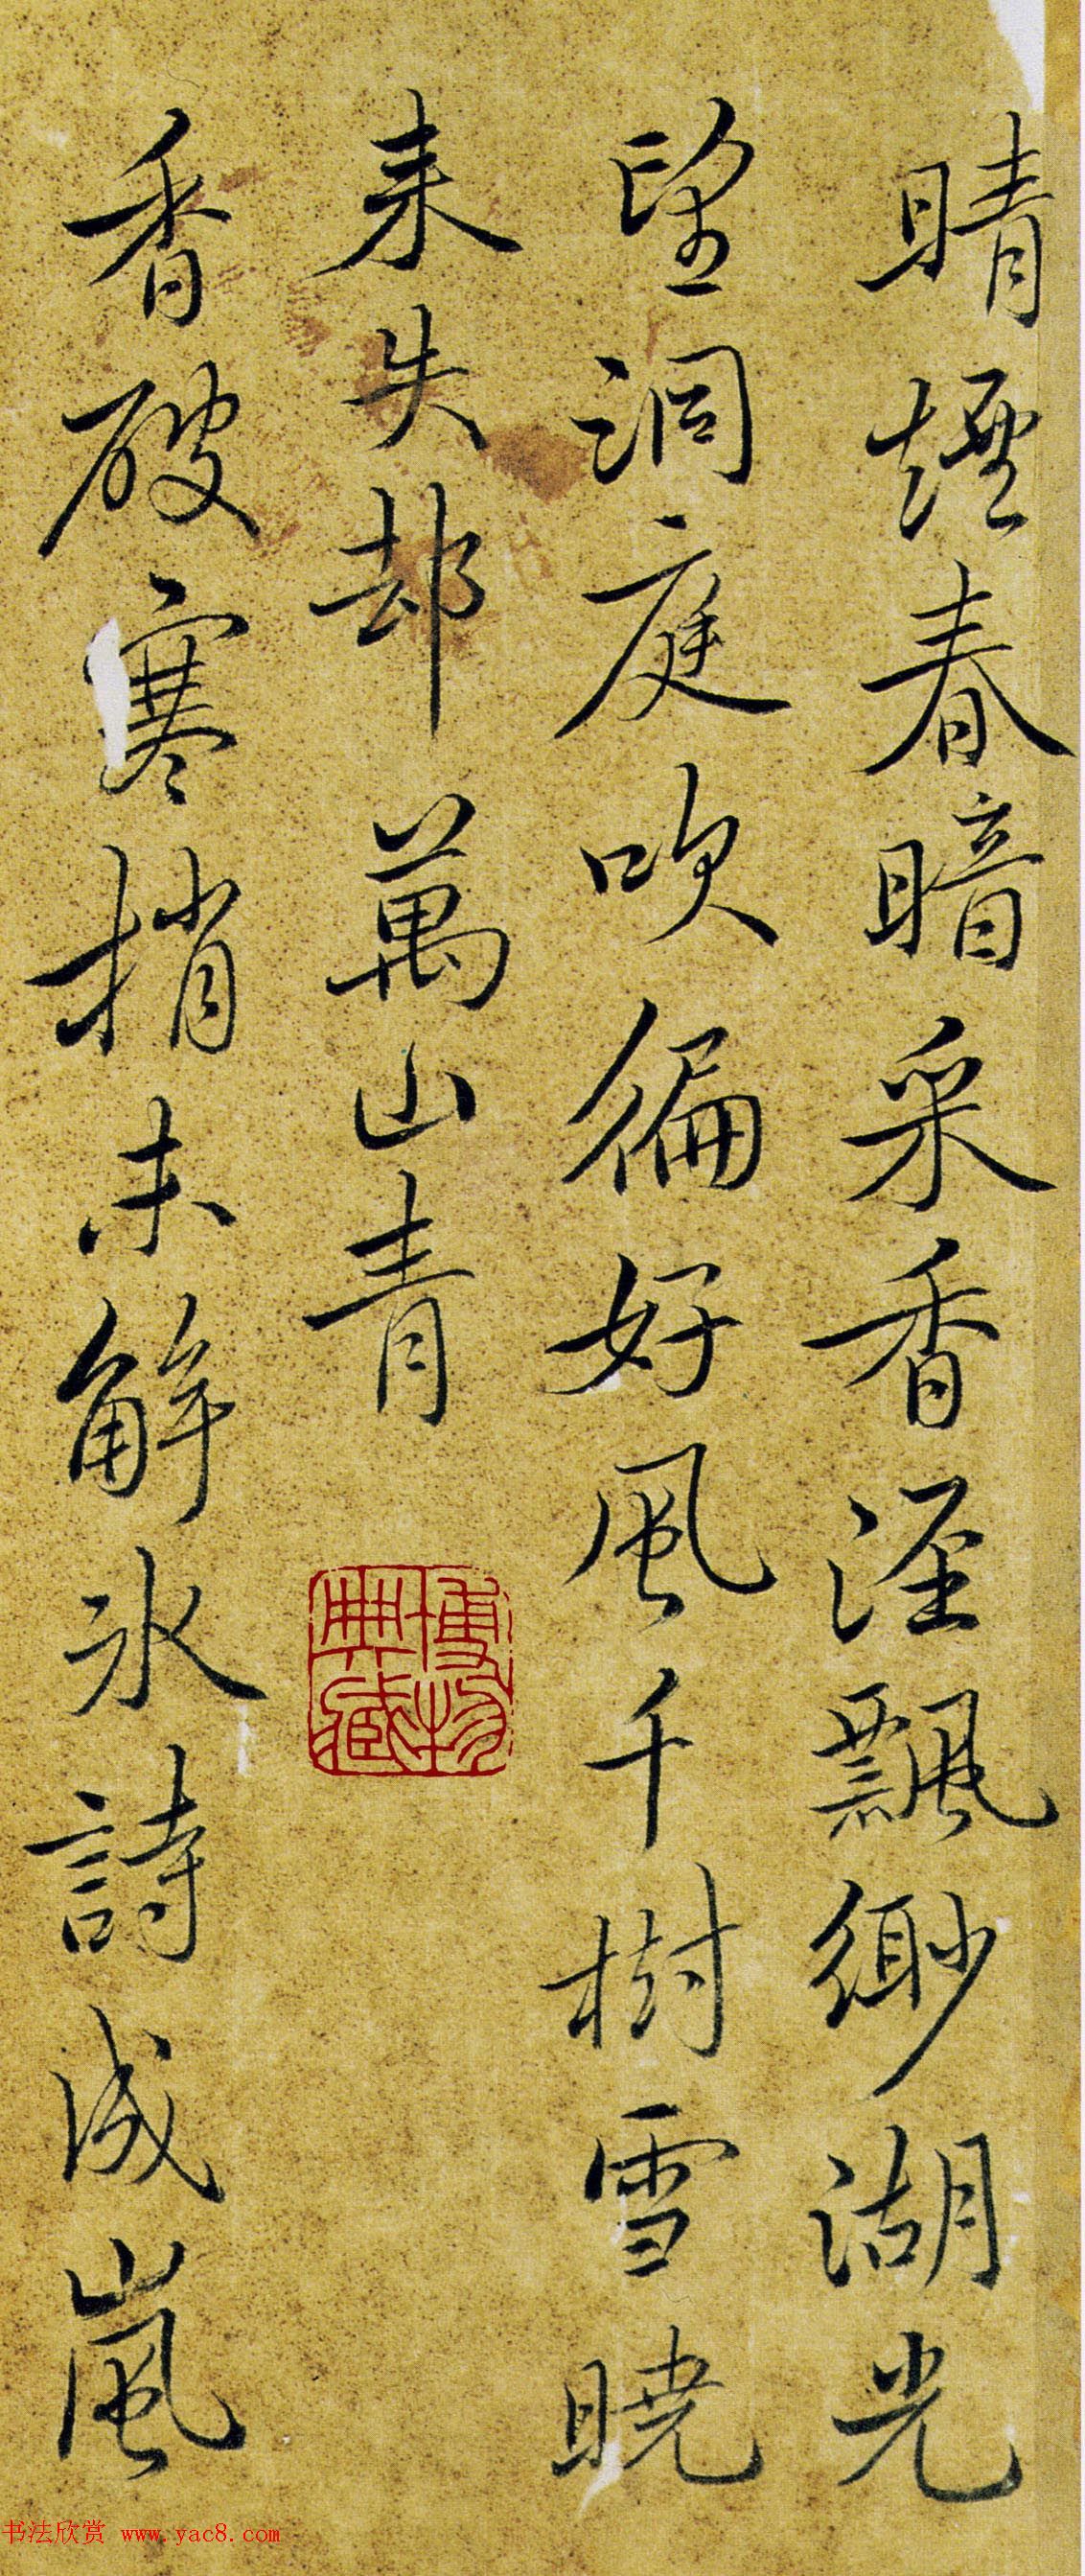 晴煙春暗采香涇飄緲湖光
望洞庭吹徧好風千樹雪曉
来失却萬山青
博物典藏
香破寒梢未解氷詩成嵐
书法欣赏 www.yac8.com